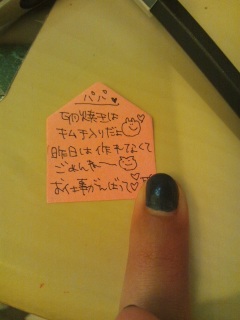 パパ♥
卵焼きは
キムチ入りだよ♡
昨日は作れてなくて
ごめんね〜
お仕事がんばって♡